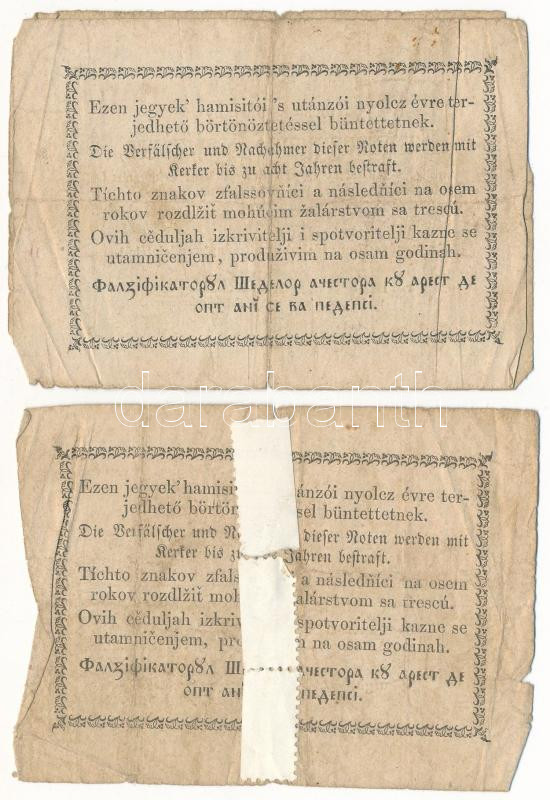 Ezen jegyek’ hamisitói ’s utánzói nyolcz évre ter-
jedhető börtönöztetéssel büntettetnek.
Die Verfälscher und Nachahmer dieser Noten werden mit
Kerker bis zu acht Jahren bestraft.
Tíchto znakov zfalssovňíci a násleďňíci na osem
rokov rozdlžiť mohúcim žalárstvom sa trescú.
Ovih cěduljah izkrivitelji i spotvoritelji kazne se
utamničenjem, produživim na osam godinah.
Фалзіфікаторȣл Шеделор ачестора кȣ арест де
опт анĭ се ва педепсі.
darabanth
Ezen jegyek’ hamisi utánzói nyolcz évre ter-
jedhető börtön sel büntettetnek.
Die Verfälscher und N dieser Noten werden mit
Kerker bis zu Jahren bestraft.
Tíchto znakov zfals a násleďňíci na osem
rokov rozdlžiť moh žalárstvom sa trescú.
Ovih cěduljah izkriv spotvoritelji kazne se
utamničenjem, pro m na osam godinah.
Фалзіфікаторȣл Ш ачестора кȣ арест де
опт ан педепсі.